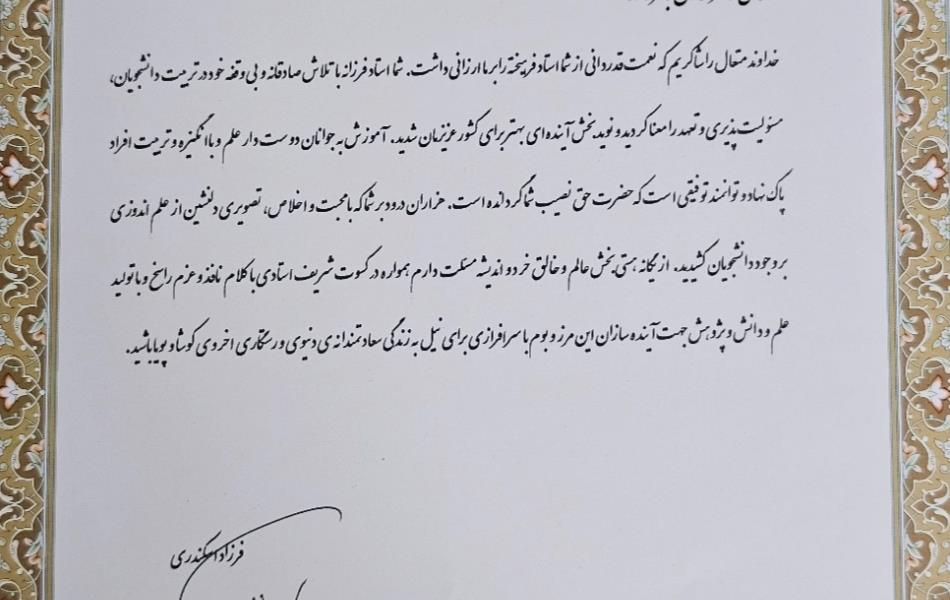 خداوند متعال را شاکریم که نعمت قدردانی از شما استاد فرهیخته را بر ما ارزانی داشت. شما استاد فرزانه با تلاش صادقانه و بی وقفه خود در تربیت دانشجویان،
مسئولیت پذیری و تعهد را معنا کردید و نوید بخش آینده ای بهتر برای کشور عزیزمان شدید. آموزش به جوانان دوست دار علم و با انگیزه و تربیت افراد
پاک نهاد و توانمند توفیقی است که حضرت حق نصیب شما گردانده است. هزاران درود بر شما که با محبت و اخلاص، تصویری دلنشین از علم اندوزی
بر وجود دانشجویان کشیدید. از یگانه هستی بخش عالم و خالق خرد و اندیشه مسئلت دارم همواره در کسوت شریف استادی با کلام نافذ و عزم راسخ و با تولید
علم و دانش و پژوهش جهت آینده سازان این مرز و بوم با سرافرازی برای نیل به زندگی سعادتمندانه ی دنیوی و رستگاری اخروی کوشا و پویا باشید.
فرزاد اسکندری